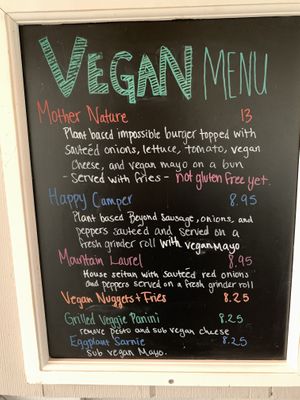 VEGAN MENU
Mother Nature 13
Plant based impossible burger topped with
sautéed onions, lettuce, tomato, vegan
cheese, and vegan mayo on a bun
- Served with fries - not gluten free yet.
Happy Camper 8.95
Plant based Beyond Sausage, onions, and
peppers sautéed and served on a
fresh grinder roll with vegan mayo
Mountain Laurel 8.95
House seitan with sautéed red onions
and peppers served on a fresh grinder roll
Vegan Nuggets + Fries 8.25
Grilled Veggie Panini 8.25
remove pesto and sub vegan cheese
Eggplant Sarnie 8.25
Sub vegan Mayo.